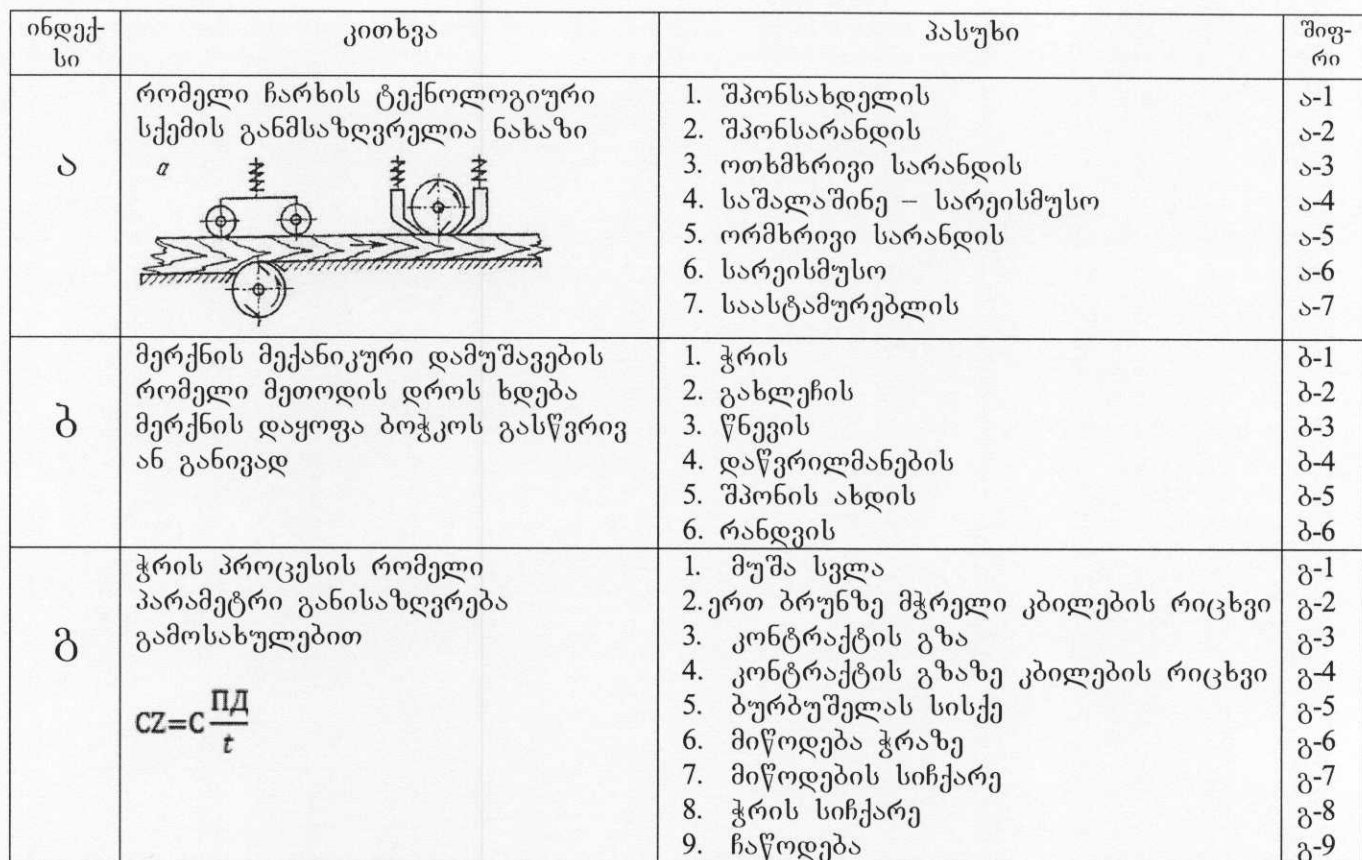 ინდექ- კითხვა პასუხი შიფ-
სი რი
ა
რომელი ჩარხის ტექნოლოგიური
სქემის განმსაზღვრელია ნახაზი
a
1. შპონსახდელის ა-1
2. შპონსარანდის ა-2
3. ოთხმხრივი სარანდის ა-3
4. საშალაშინე – სარეისმუსო ა-4
5. ორმხრივი სარანდის ა-5
6. სარეისმუსო ა-6
7. საასტამურებლის ა-7
ბ
მერქნის მექანიკური დამუშავების
რომელი მეთოდის დროს ხდება
მერქნის დაყოფა ბოჭკოს გასწვრივ
ან განივად
1. ჭრის ბ-1
2. გახლეჩის ბ-2
3. წნევის ბ-3
4. დაწვრილმანების ბ-4
5. შპონის ახდის ბ-5
6. რანდვის ბ-6
გ
ჭრის პროცესის რომელი
პარამეტრი განისაზღვრება
გამოსახულებით
CZ=C ПД/t
1. მუშა სვლა გ-1
2. ერთ ბრუნზე მჭრელი კბილების რიცხვი გ-2
3. კონტრაქტის გზა გ-3
4. კონტრაქტის გზაზე კბილების რიცხვი გ-4
5. ბურბუშელას სისქე გ-5
6. მიწოდება ჭრაზე გ-6
7. მიწოდების სიჩქარე გ-7
8. ჭრის სიჩქარე გ-8
9. ჩაწოდება გ-9